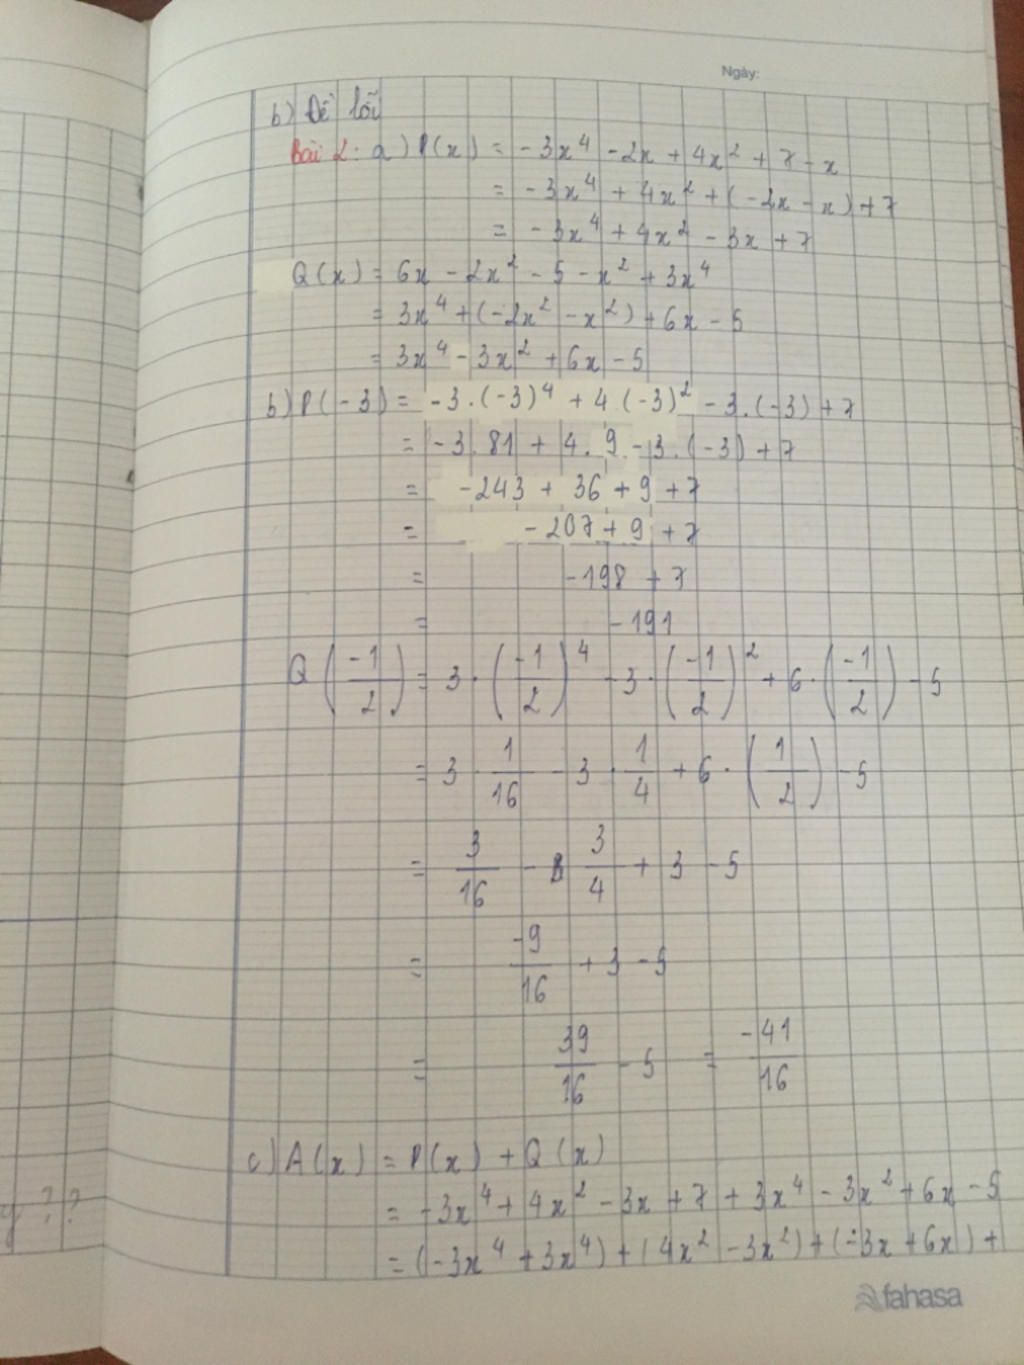 Ngày:
b) Đề lỗi
Bài 2: a) P(x) = -3x⁴ - 2x + 4x² + 7 - x
= -3x⁴ + 4x² + (-2x - x) + 7
= -3x⁴ + 4x² - 3x + 7
Q(x) = 6x - 2x² - 5 - x² + 3x⁴
= 3x⁴ + (-2x² - x²) + 6x - 5
= 3x⁴ - 3x² + 6x - 5
b) P(-3) = -3.(-3)⁴ + 4.(-3)² - 3.(-3) + 7
= -3.81 + 4.9 - 3.(-3) + 7
= -243 + 36 + 9 + 7
= -207 + 9 + 7
= -198 + 7
= -191
Q(-1/2) = 3.(-1/2)⁴ - 3.(-1/2)² + 6.(-1/2) - 5
= 3.1/16 - 3.1/4 + 6.(1/2) - 5
= 3/16 - 3/4 + 3 - 5
= -9/16 + 3 - 5
= 39/16 - 5 = -41/16
c) A(x) = P(x) + Q(x)
= -3x⁴ + 4x² - 3x + 7 + 3x⁴ - 3x² + 6x - 5
= (-3x⁴ + 3x⁴) + (4x² - 3x²) + (-3x + 6x) +
??
fahasa